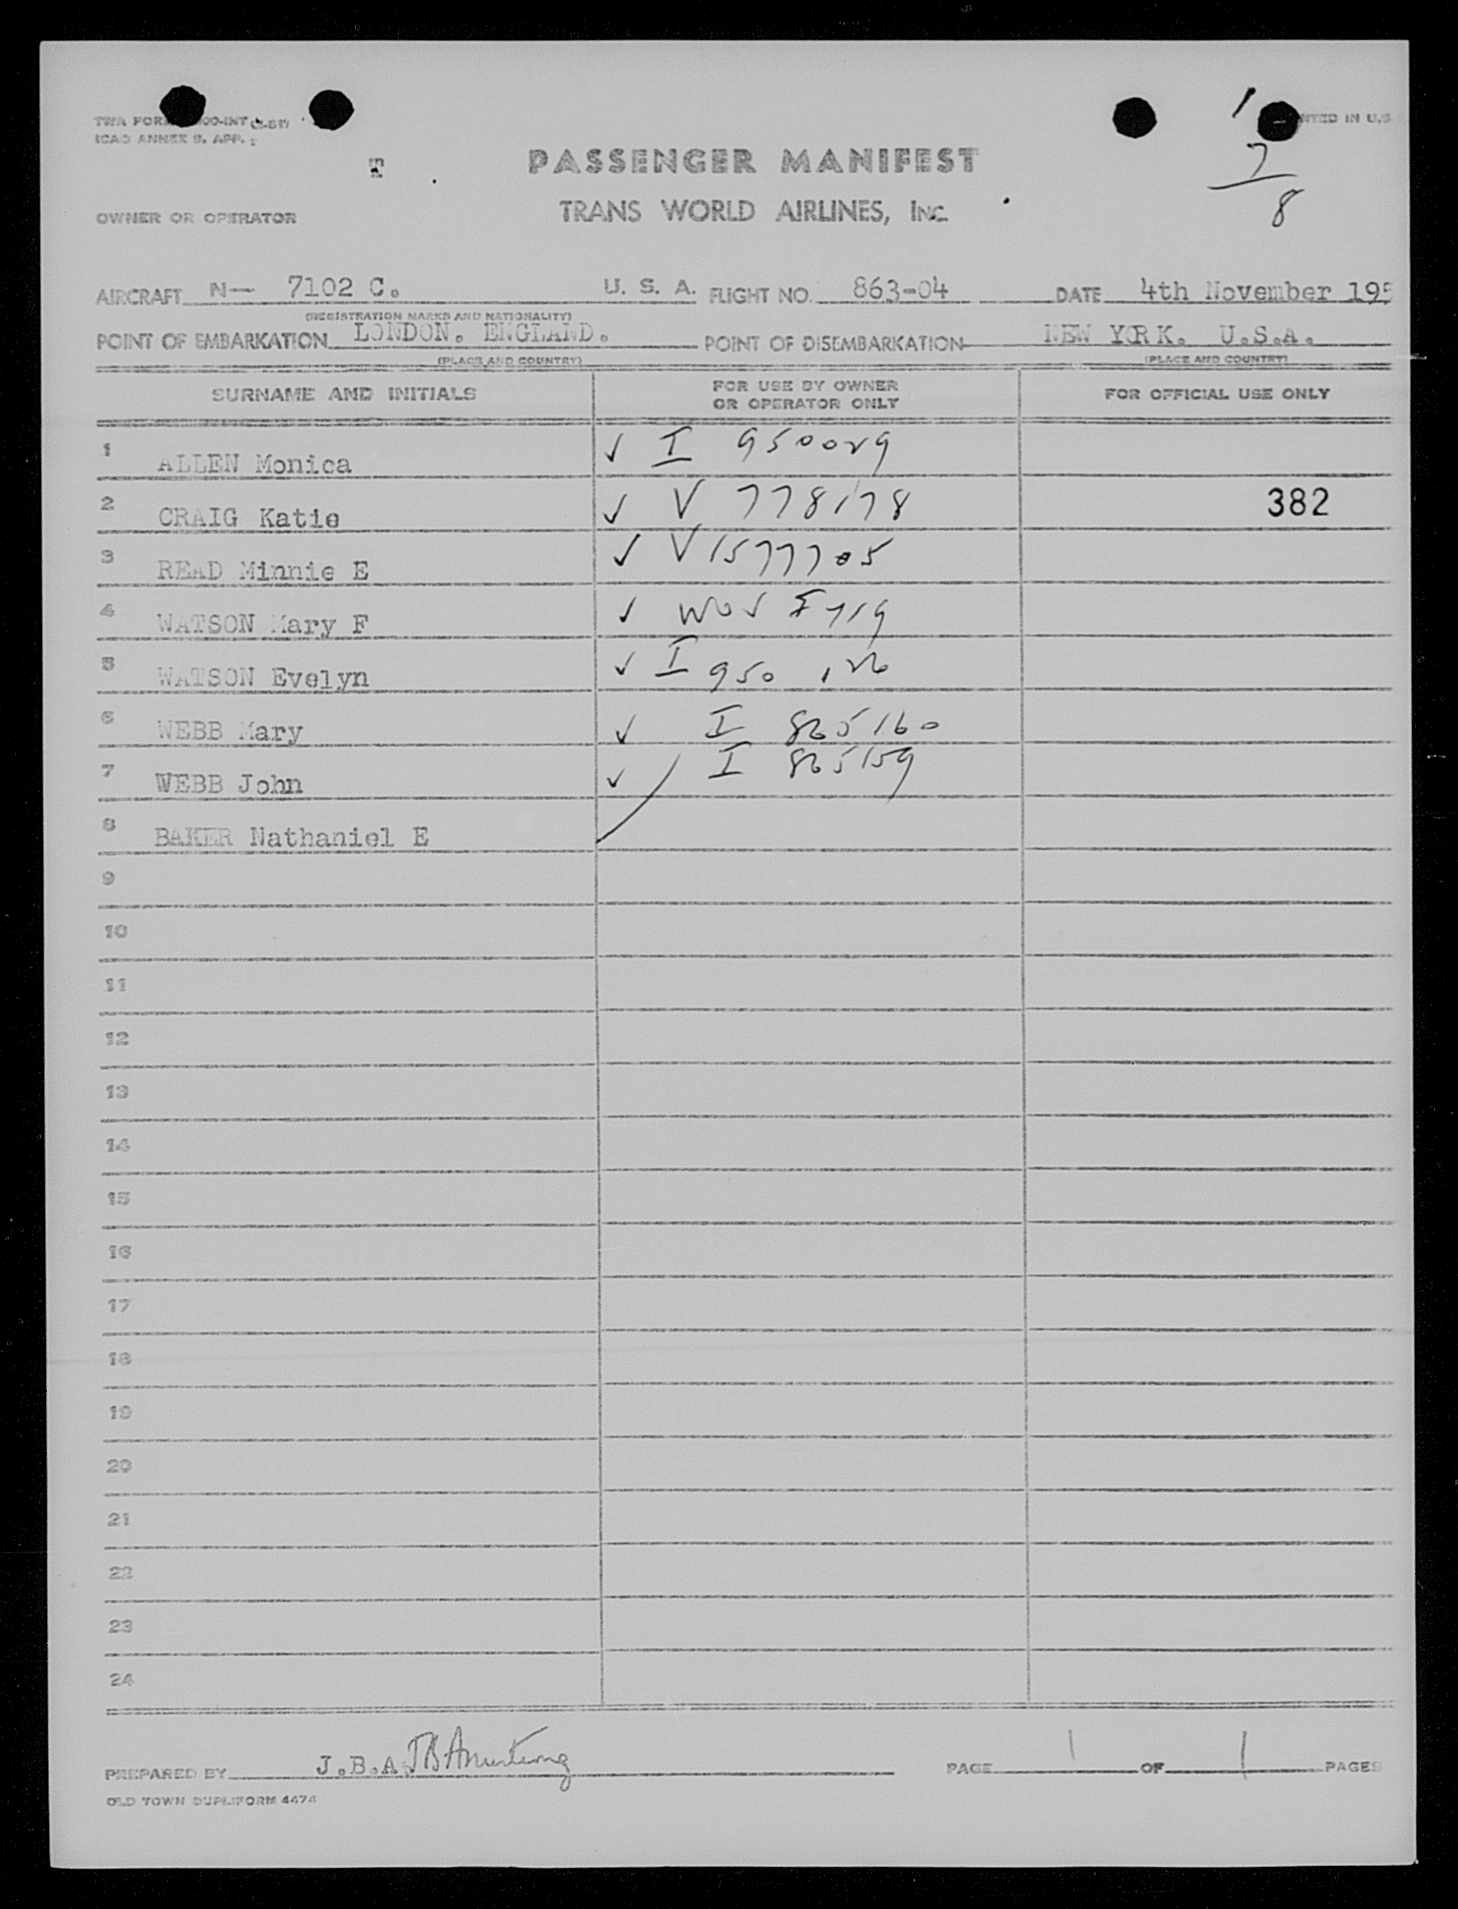 TWA FORM 00-INT (3-51)
ICAO ANNEX 9. APP.
PRINTED IN U.S
1
7
8
PASSENGER MANIFEST
OWNER OR OPERATOR TRANS WORLD AIRLINES, INC.
AIRCRAFT N- 7102 C. U. S. A. FLIGHT NO. 863-04 DATE 4th November 195
(REGISTRATION MARKS AND NATIONALITY)
POINT OF EMBARKATION LONDON. ENGLAND. POINT OF DISEMBARKATION NEW YORK. U.S.A.
(PLACE AND COUNTRY) (PLACE AND COUNTRY)
SURNAME AND INITIALS FOR USE BY OWNER OR OPERATOR ONLY FOR OFFICIAL USE ONLY
1 ALLEN Monica ✓ I 950029
2 CRAIG Katie ✓ V 778178 382
3 READ Minnie E ✓ V1577705
4 WATSON Mary F ✓ 719
5 WATSON Evelyn ✓ I 950 126
6 WEBB Mary ✓ I 865160
7 WEBB John ✓ I 865159
8 BAKER Nathaniel E
9
10
11
12
13
14
15
16
17
18
19
20
21
22
23
24
PREPARED BY J.B.A. JB Armstrong PAGE 1 OF 1 PAGES
OLD TOWN DUPLIFORM 4474